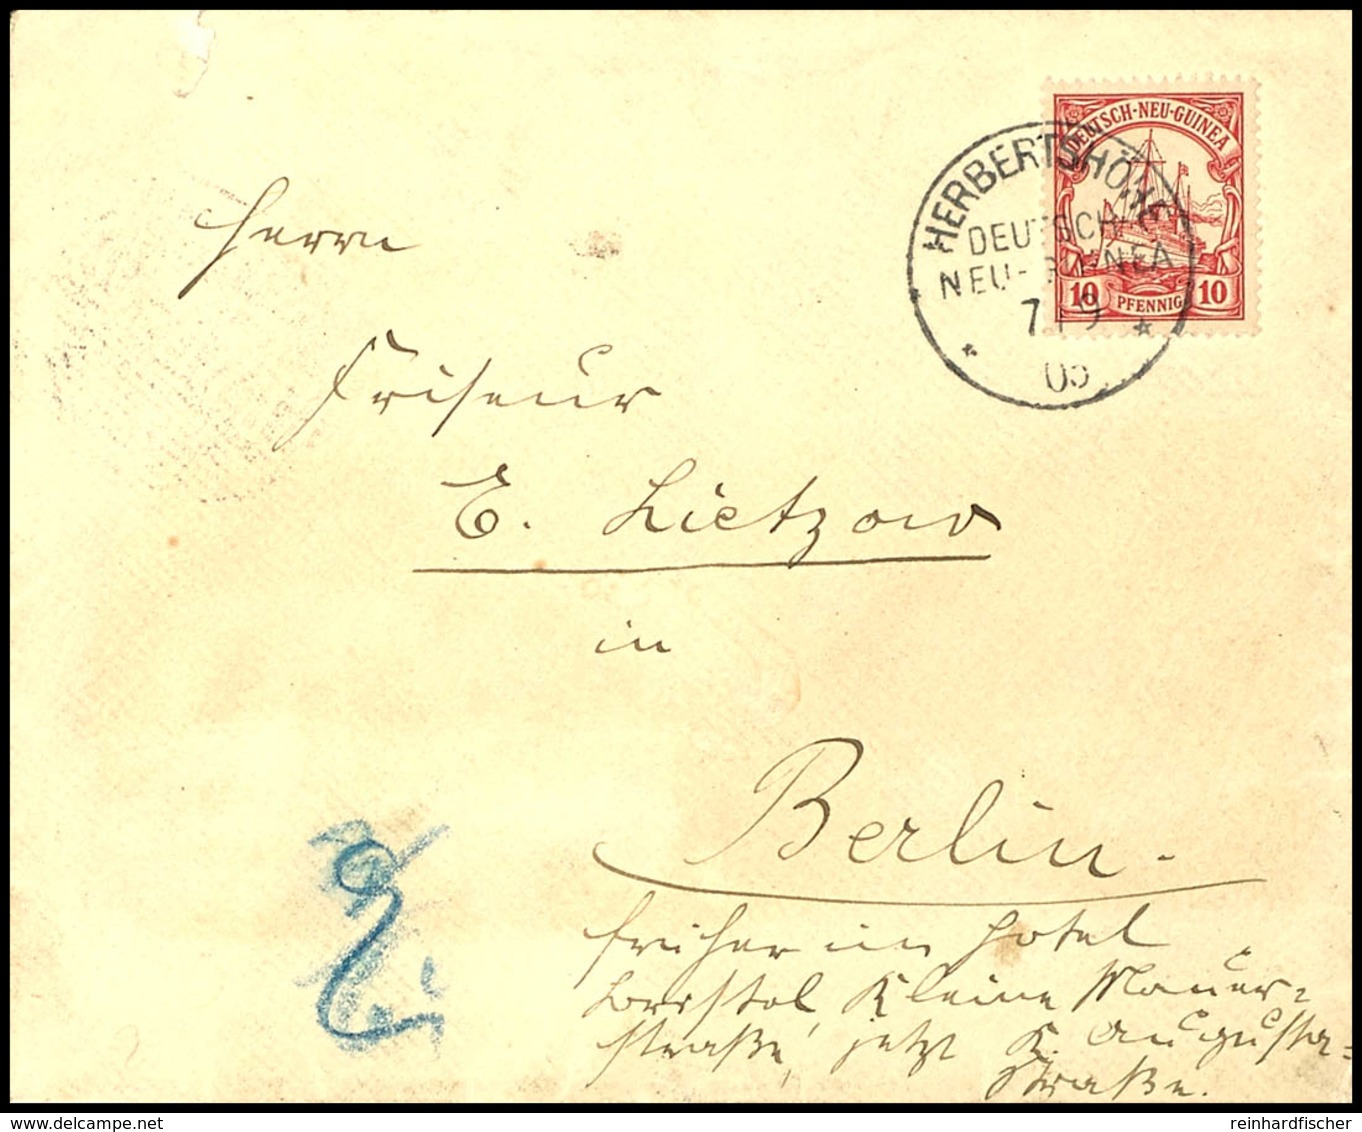 DEUTSCH-NEU-GUINEA
10 PFENNIG 10
HERBERTSHÖHE
DEUTSCH-
NEU-GUINEA
7/9
05
Herrn
Friseur
E. Lietzow
in
Berlin.
früher im Hotel
Kleine Mauer=
straße, jetzt K. Augusta=
Straße.
delcampe.net
reinhardfischer